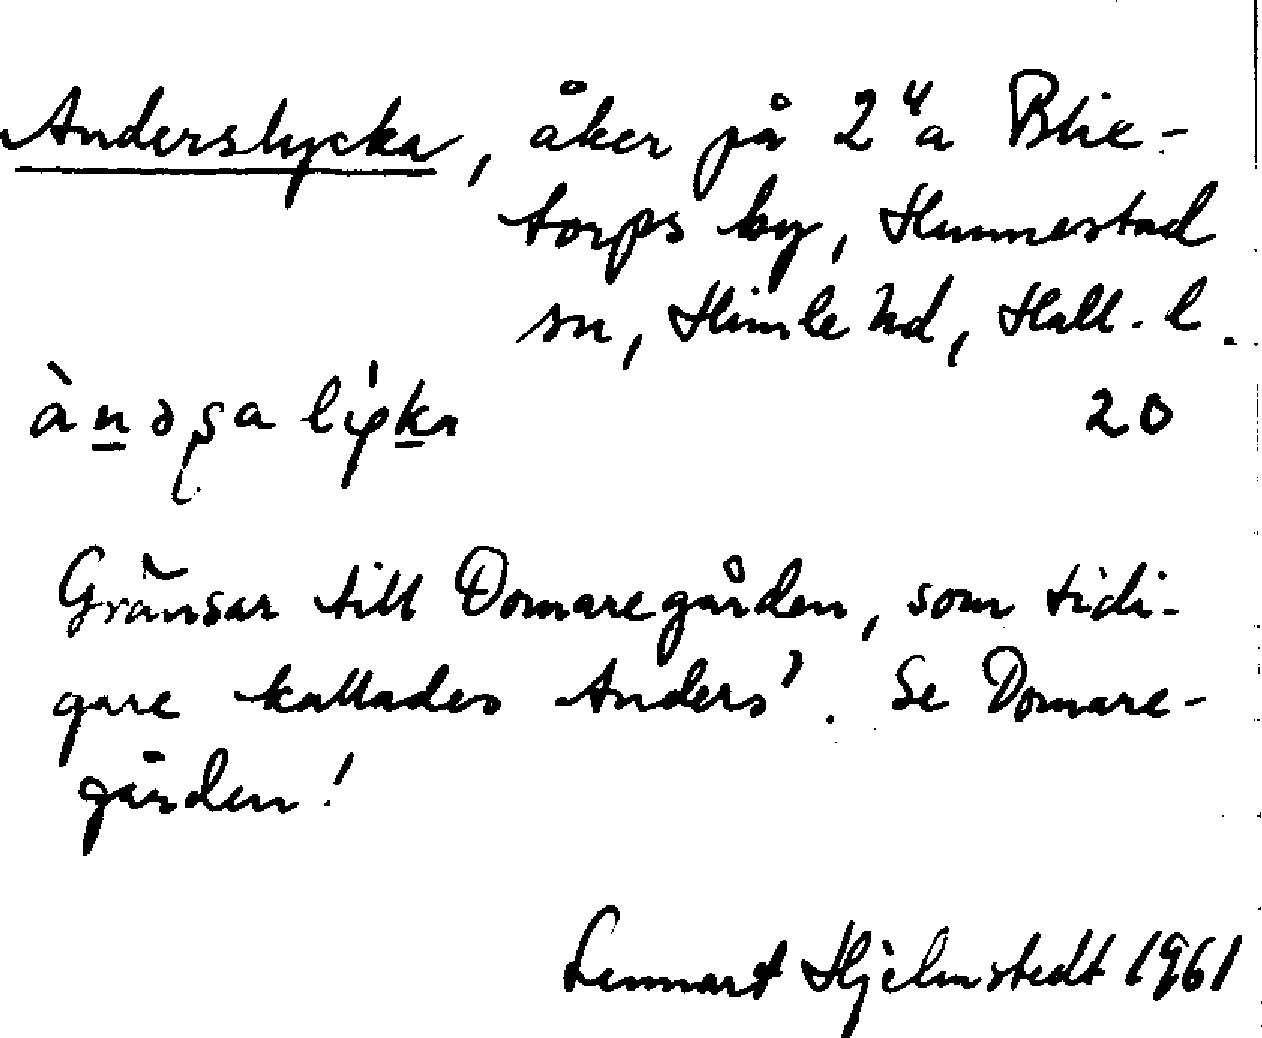 Anderslycka, åker på 2"a Blix-
torps by, Hunnestad
sn, Himle hd, Hall. l.
20
Gränsar till Domaregården, som tidi-
gare kallades Anders'. Se Domare-
gården!
Lennart Hjelmstedt 1961